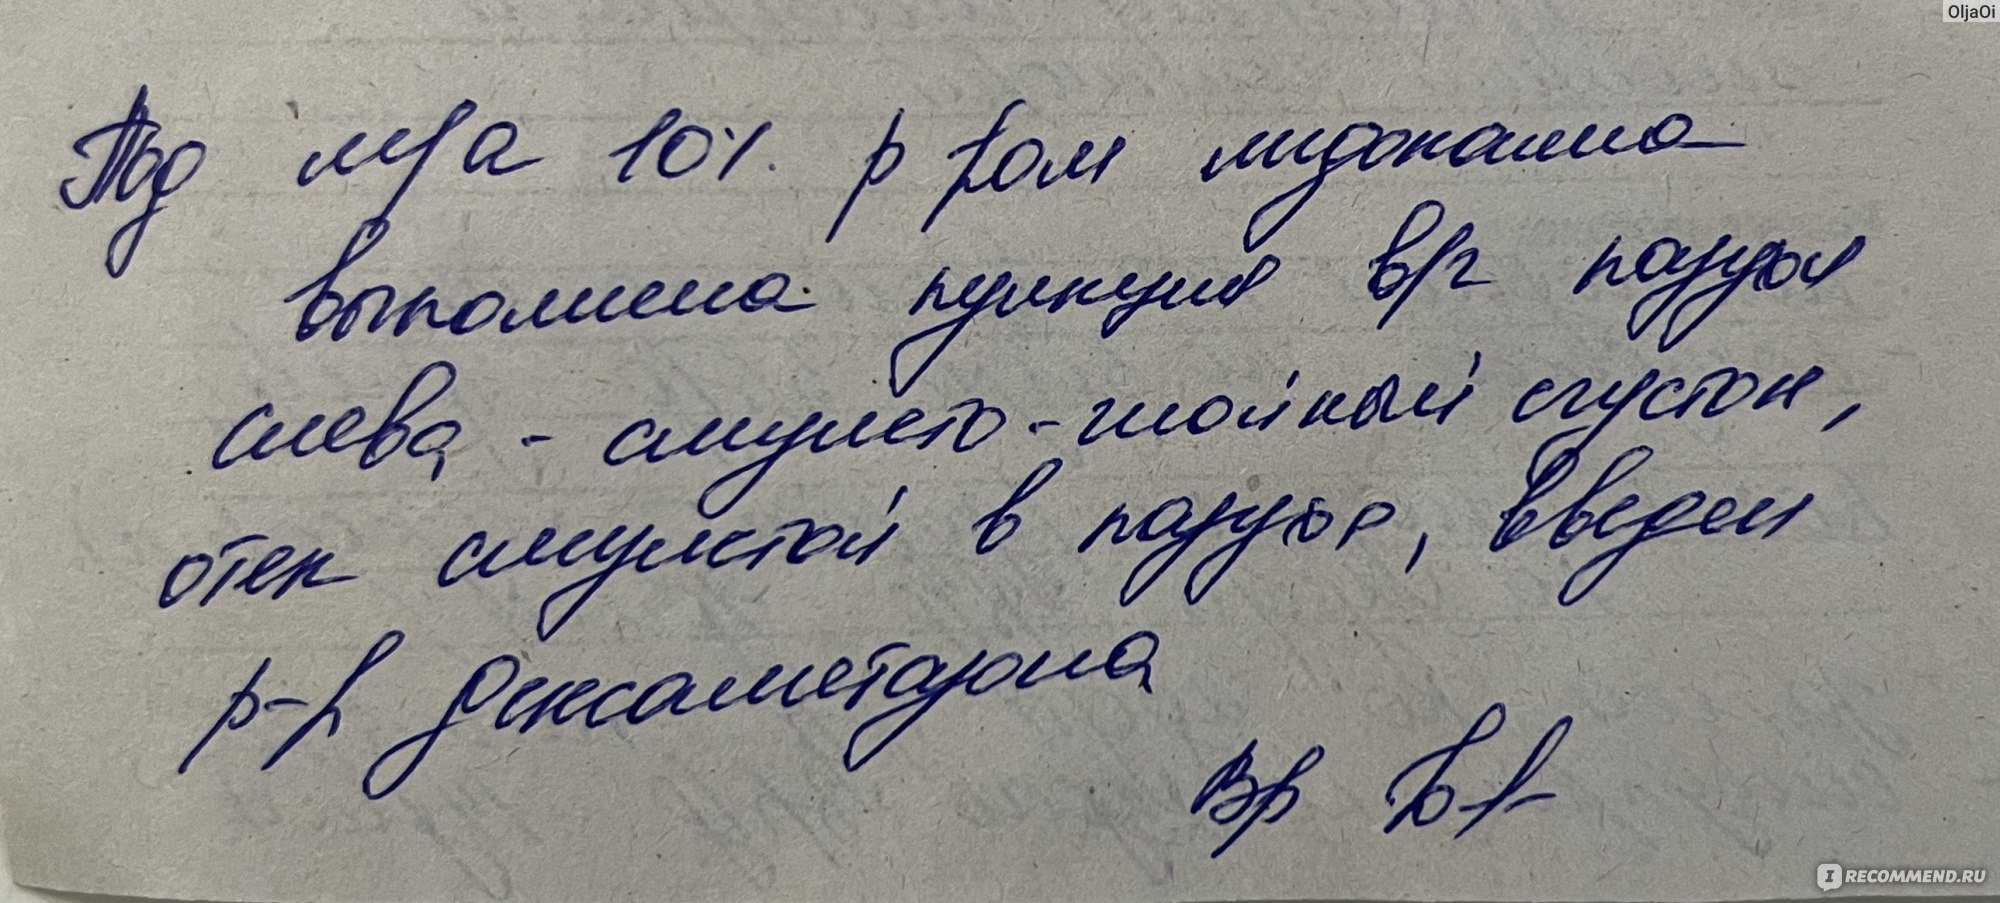 OljaOi
Под м/а 10%. р-ром лидокаина
выполнена пункция в/ч пазухи
слева - слизисто-гнойный сгусток,
отек слизистой в пазухе, введен
р-р дексаметазона
Вр
IRECOMMEND.RU